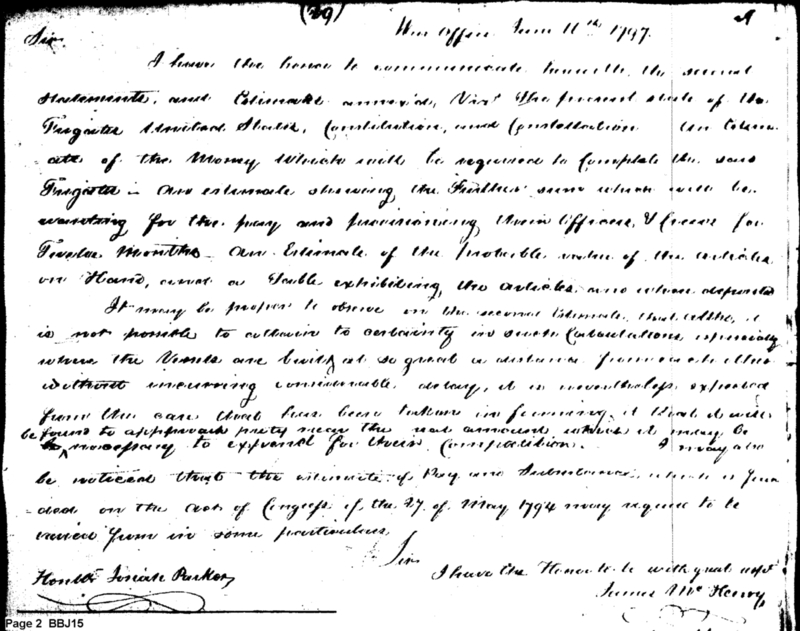 (29)
War Office June 11th 1797.
Sir
I have the honor to communicate herewith the several
statements, and Estimates annex'd, Vizt The present state of the
Frigates United States, Constitution, and Constellation An Estim-
ate of the Money which will be required to Complete the said
Frigates - An estimate shewing the Further sum which will be
wanting for the pay and provisioning their Officers, & Crews for
Twelve Months - An Estimate of the Probable value of the articles
on Hand, and a Table exhibiting, the articles and where deposited
It may be proper to observe on the second Estimate, that altho, it
is not possible to attain to certainty in such Calculations especially
where the Vessels are built at so great a distance from each other
without incurring considerable delay, it is nevertheless expected
from the care that has been taken in forming it that it will
be found to approach pretty near the real amount which it may be
necessary to expend for their Completion. I may also
be noticed that the estimate of Pay and Subsistence, which is foun
ded on the Act of Congress of the 27 of May 1794 may require to be
revised from in some particulars
Sir
I have the Honor to be with great respt
Honble Josiah Parker,
James McHenry
Page 2 BBJ15